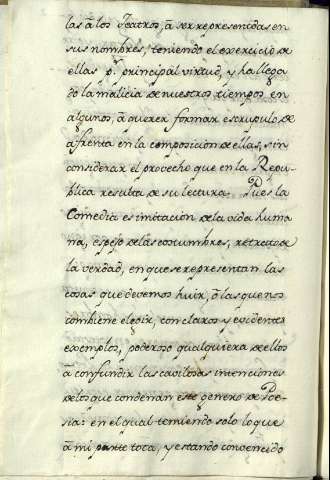 las â los Teatros, â ser representadas en
sus nombres, teniendo el exercicio de
ellas pr. principal virtud, y ha llega
do la malicia de nuestros tiempos en
algunos, â querer formar escrupulo de
afrenta en la composicion de ellas, sin
considerar el provecho que en la Repu
blica resulta de su lectura. Pues la
Comedia es imitacion de la vida huma
na, espejo de las costumbres, retrato de
la verdad, en que se representan las
cosas que devemos huir, ô las que nos
combiene elegir, con claros y evidentes
exemplos, poderoso qualquiera de ellos
â confundir las cavilosas intenciones
de los que condenan este genero de Poe
sia: en el qual temiendo solo lo que
â mi parte toca, y estando convencido